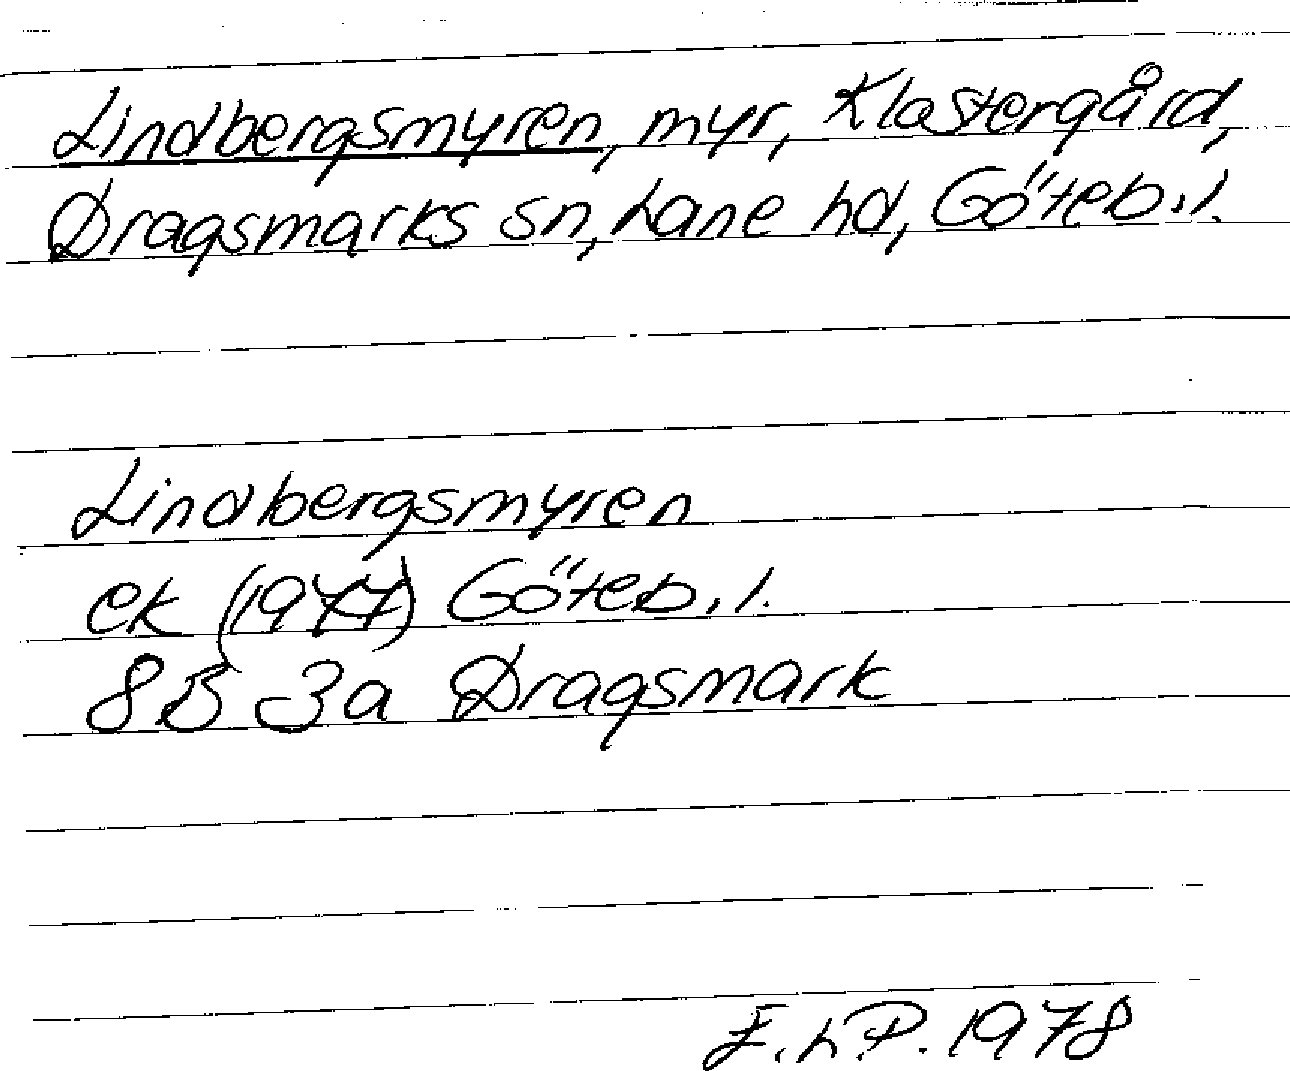 Lindbergsmyren, myr, Klostergård,
Dragsmarks sn, Lane hd, Göteb.l.
Lindbergsmyren
ek (1977) Göteb.l.
8B 3a Dragsmark
E.LP. 1978